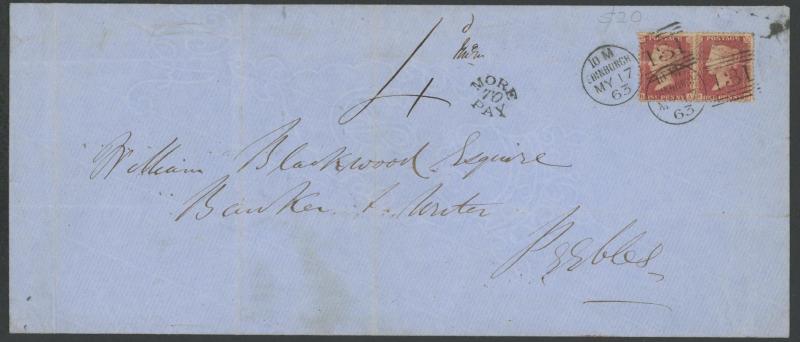 520
4d
MORE
TO
PAY
10 M
EDINBURGH
MY 17
63
131
131
63
POSTAGE
POSTAGE
ONE PENNY
ONE PENNY
William Blackwood Esquire
Banker & Writer
Peebles